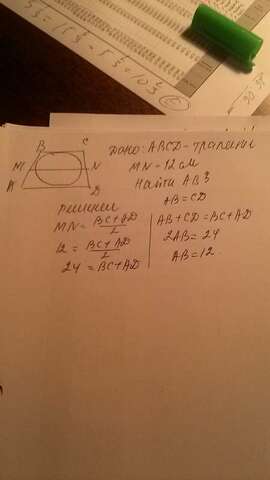 B C
M N
A D
Дано: ABCD - трапеция
MN - 12 см
Найти AB?
AB = CD
Решение
MN = BC + AD / 2
12 = BC + AD / 2
24 = BC + AD
AB + CD = BC + AD
2AB = 24
AB = 12.